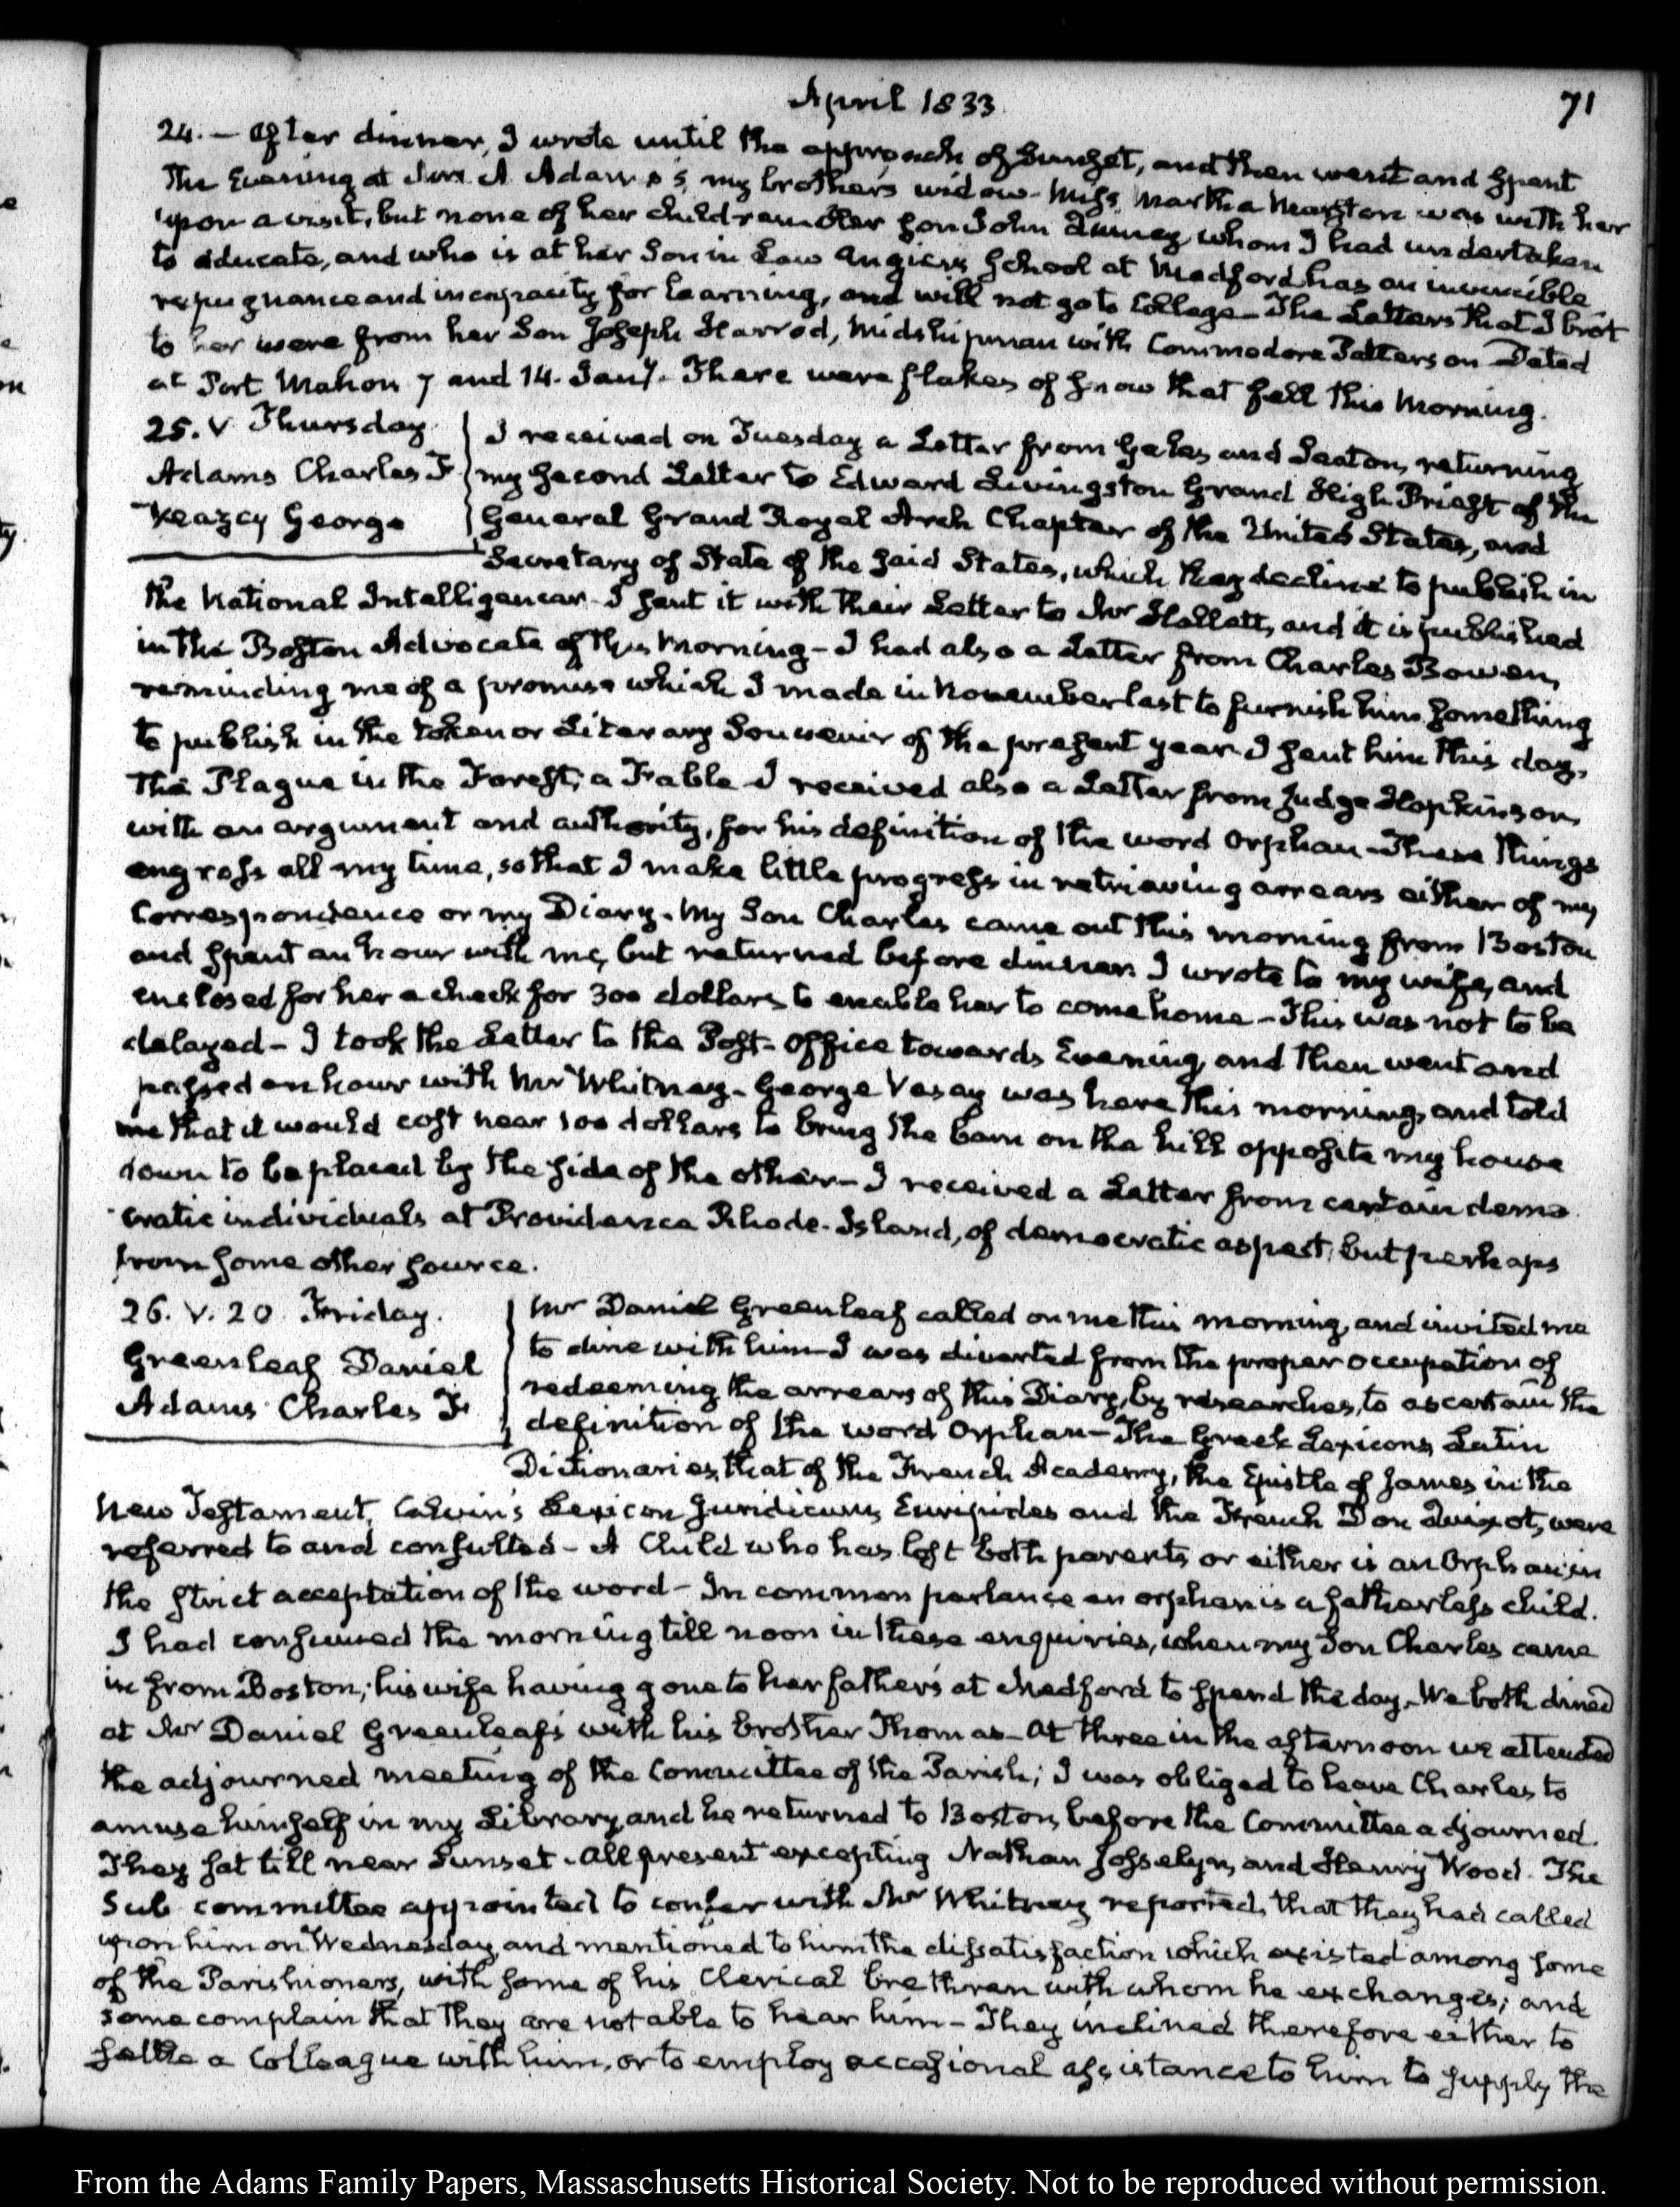 April 1833.
71
24. — After dinner, I wrote until the approach of Sunset, and then went and spent
the Evening at Mrs. A Adams's, my brother's widow. Miss Martha Marston was with her
upon a visit, but none of her children. Her son John Quincy, whom I had undertaken
to educate, and who is at her Son in Law Angier's School at Medford has an invincible
repugnance and incapacity for learning, and will not go to College — The Letters that I brot
to her were from her Son Joseph Harrod, Midshipman with Commodore Patterson Dated
at Port Mahon 7 and 14. Jany. There were flakes of snow that fell this Morning.
25. V. Thursday.
Adams Charles F
Veazey George
I received on Tuesday a Letter from Gales and Seaton, returning
my second Letter to Edward Livingston Grand High Priest of the
General Grand Royal Arch Chapter of the United States, and
Secretary of State of the said States, which they decline to publish in
the National Intelligencer. I sent it with their Letter to Mr Hallett, and it is published
in the Boston Advocate of this Morning — I had also a Letter from Charles Bowen,
reminding me of a promise which I made in November last to furnish him something
to publish in the token or Literary Souvenir of the present year. I sent him this day,
The Plague in the Forest; a Fable. I received also a Letter from Judge Hopkinson,
with an argument and authority, for his definition of the word Orphan — These things
engross all my time, so that I make little progress in retrieving arrears either of my
Correspondence or my Diary. My Son Charles came out this morning from Boston
and spent an hour with me, but returned before dinner. I wrote to my wife, and
enclosed for her a check for 300 dollars to enable her to come home — This was not to be
delayed — I took the Letter to the Post-Office towards Evening, and then went and
passed an hour with Mr Whitney. George Vesay was here this morning, and told
me that it would cost near 100 dollars to bring the barn on the hill opposite my house
down to be placed by the side of the other — I received a Letter from certain demo
cratic individuals at Providence Rhode-Island, of democratic aspect, but perhaps
from some other source.
26. V. 20. Friday.
Greenleaf Daniel
Adams Charles F.
Mr Daniel Greenleaf called on me this morning, and invited me
to dine with him — I was diverted from the proper occupation of
redeeming the arrears of this Diary, by researches, to ascertain the
definition of the word Orphan — The Greek Lexicons, Latin
Dictionaries, that of the French Academy, the Epistle of James in the
New Testament, Calvin's Lexicon Juridicum, Euripides and the French Don Quixot, were
referred to and consulted — A Child who has lost both parents or either is an Orphan, in
the strict acceptation of the word — In common parlance an orphan is a fatherless child.
I had consumed the morning till noon in these enquiries, when my Son Charles came
in from Boston; his wife having gone to her father's at Medford to spend the day. We both dined
at Mr Daniel Greenleaf's with his brother Thomas — At three in the afternoon we attended
the adjourned meeting of the Committee of the Parish; I was obliged to leave Charles to
amuse himself in my Library, and he returned to Boston, before the Committee adjourned.
They sat till near Sunset. All present excepting Nathan Josselyn, and Henry Wood. The
Sub committee appointed to confer with Mr Whitney reported, that they had called
upon him on Wednesday, and mentioned to him the dissatisfaction which existed among some
of the Parishioners, with some of his Clerical brethren with whom he exchanges; and
some complain that they are not able to hear him — They inclined therefore either to
settle a Colleague with him, or to employ occasional assistance to him to supply the
From the Adams Family Papers, Massachusetts Historical Society. Not to be reproduced without permission.